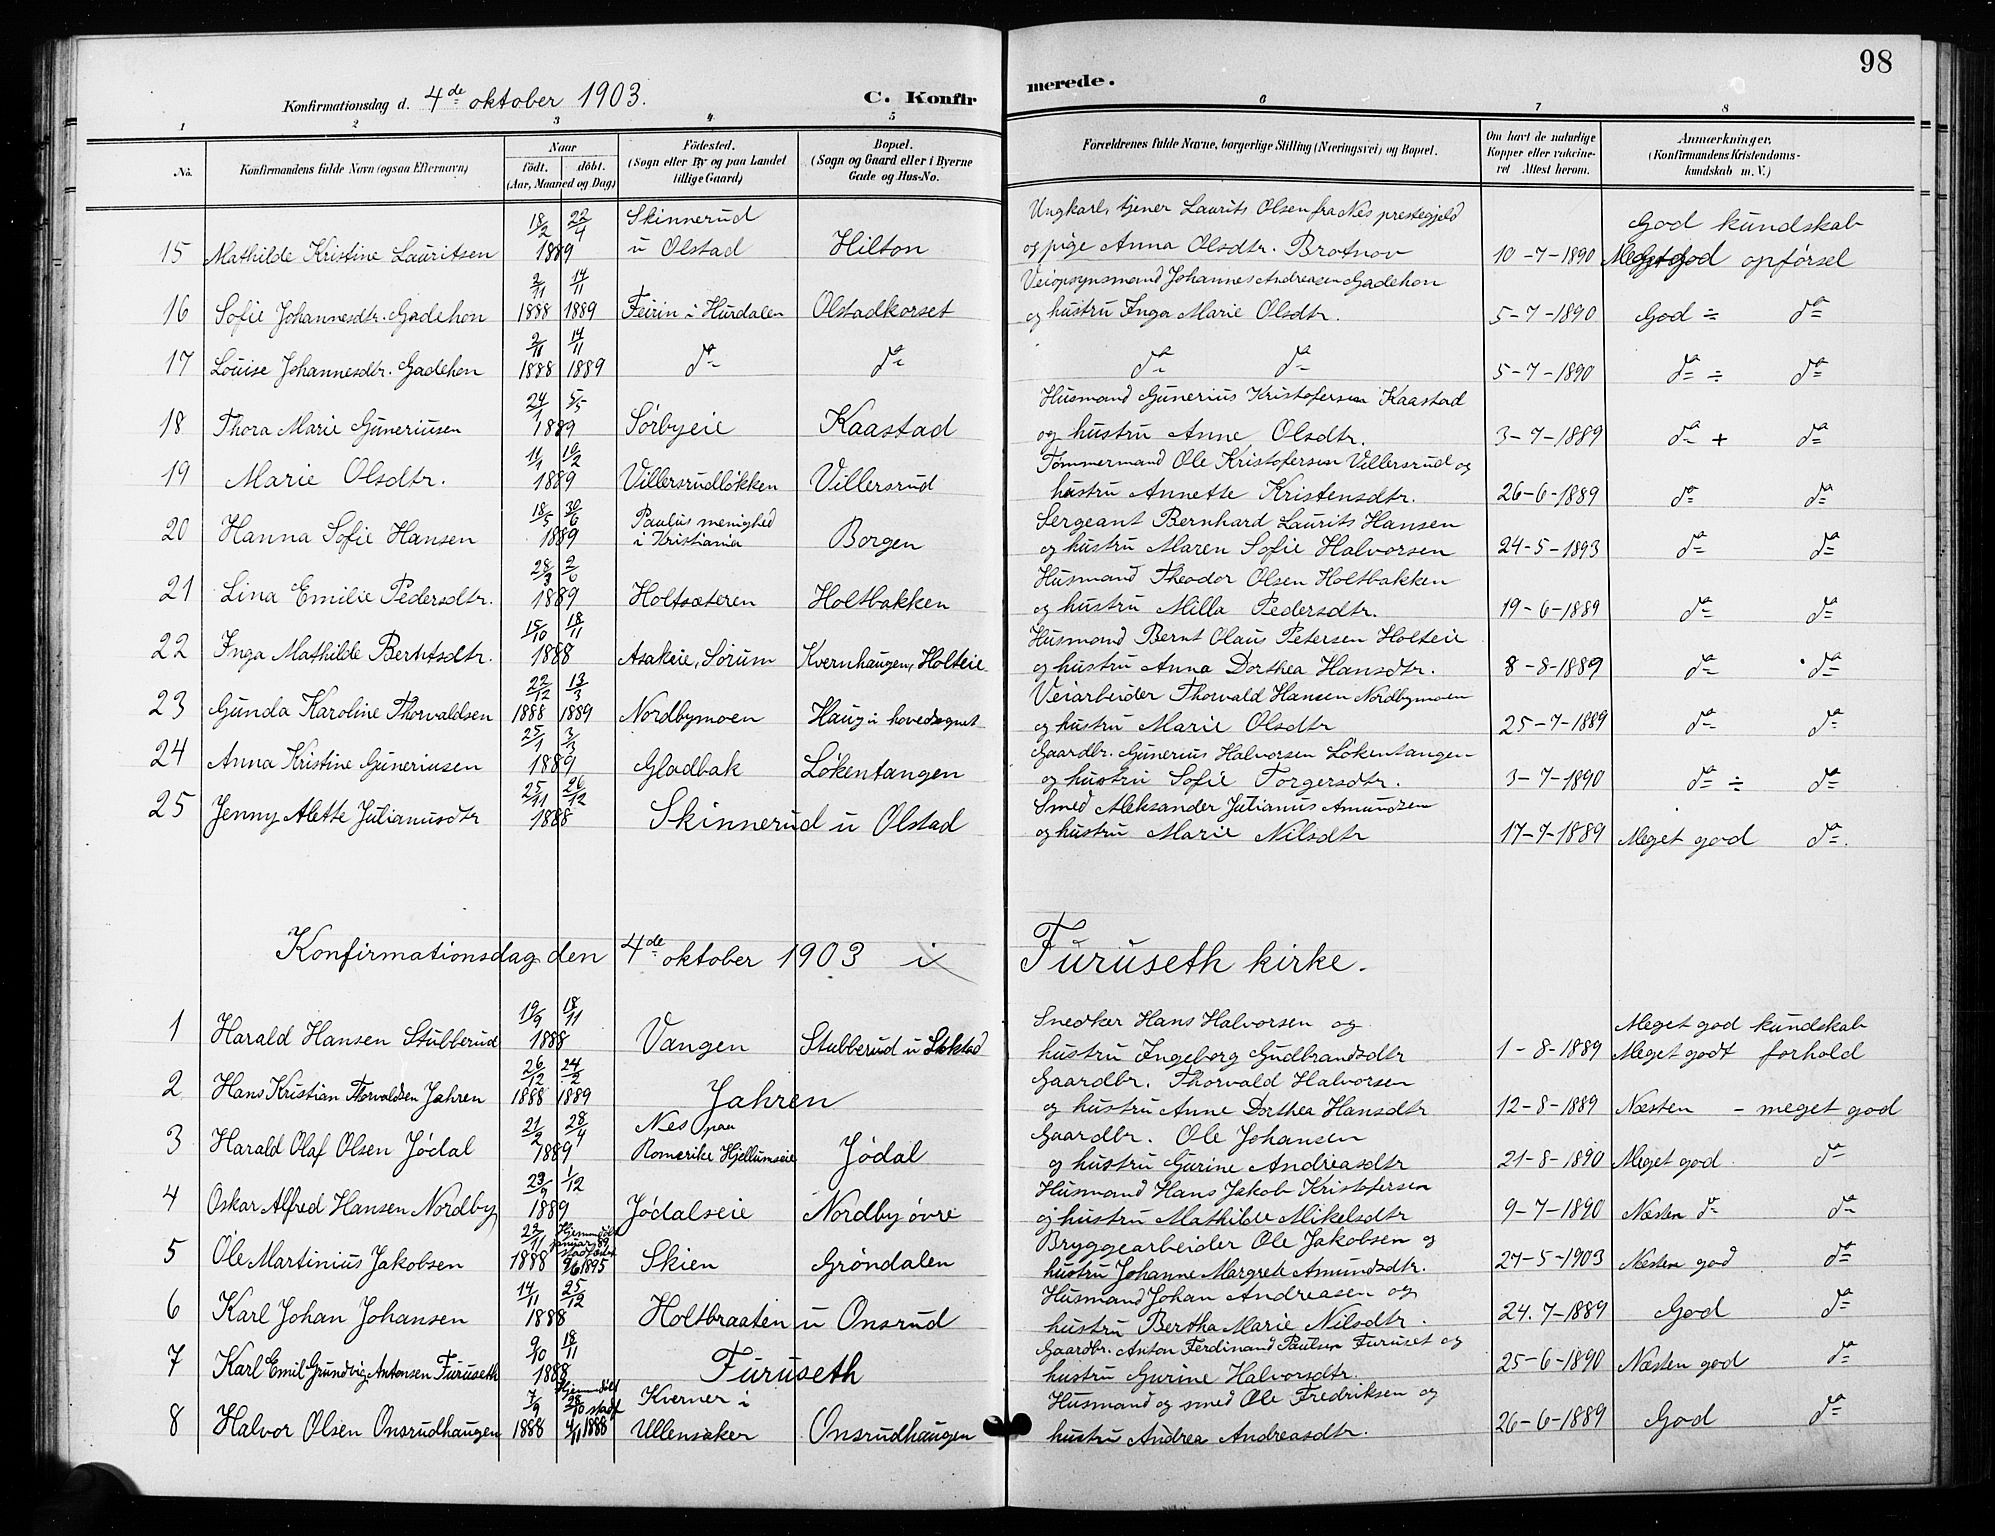 98
Konfirmationsdag d. 4de oktober 1903. C. Konfirmerede.
1 2 3 4 5 6 7 8
No. Konfirmandens fulde Navn (ogsaa Efternavn) Naar Født. døbt. (Aar, Maaned og Dag) Fødested. (Sogn eller By og paa Landet tillige Gaard) Bopæl. (Sogn og Gaard eller i Byerne Gade og Hus-No. Forældrenes fulde Navne, borgerlige Stilling (Næringsvei) og Bopæl. Om havt de naturlige Kopper eller vaccineret Attest herom. Anmerkninger, (Konfirmandens Kristendomskundskab m. V.)
15 Mathilde Kristine Lauritsen 18/2 22/4 1889 Skinnerud u Olstad Hilton Ungkarl, tjener Laurits Olsen fra Nes prestegjeld og pige Anna Olsdtr. Brotnov 10-7-1890 God kundskab Meget god opførsel
16 Sofie Johannesdtr. Gadehon 2/11 1888 14/11 1889 Feirin i Hurdalen Olstadkorset Veiopsynsmand Johannes Andreasen Gadehon og hustru Inga Marie Olsdtr. 5-7-1890 God ÷ do
17 Louise Johannesdtr. Gadehon 2/11 1888 14/11 1889 do do do do 5-7-1890 do ÷ do
18 Thora Marie Guneriusen 24/1 5/5 1889 Sørbyeie Kaastad Husmand Gunerius Kristofersen Kaastad og hustru Anne Olsdtr. 3-7-1889 do + do
19 Marie Olsdtr. 11/1 10/2 1889 Villersrudløkken Villersrud Tømmermand Ole Kristofersen Villersrud og hustru Annette Kristensdtr. 26-6-1889 do do
20 Hanna Sofie Hansen 18/5 30/6 1889 Paulus menighed i Kristiania Borgen Sergeant Bernhard Laurits Hansen og hustru Maren Sofie Halvorsen 24-5-1893 do do
21 Lina Emilie Pedersdtr. 28/3 2/6 1889 Holtsæteren Holtbakken Husmand Theodor Olsen Holtbakken og hustru Milla Pedersdtr. 19-6-1889 do do
22 Inga Mathilde Berntsdtr. 15/10 18/11 1888 Asakeie, Sørum Kvernhaugen, Holteie Husmand Bernt Olaus Petersen Holteie og hustru Anna Dorthea Hansdtr. 8-8-1889 do do
23 Gunda Karoline Thorvaldsen 22/12 1888 13/3 1889 Nordbymoen Haug i hovedsognet Veiarbeider Thorvald Hansen Nordbymoen og hustru Marie Olsdtr 25-7-1889 do do
24 Anna Kristine Guneriusen 25/1 3/3 1889 Gladbak Løkentangen Gaardbr. Gunerius Halvorsen Løkentangen og hustru Sofie Torgersdtr. 3-7-1890 do ÷ do
25 Jenny Alette Julianusdtr 25/11 26/12 1888 Skinnerud u Olstad Smed Aleksander Julianus Amundsen og hustru Marie Nilsdtr 17-7-1889 Meget god do.
Konfirmationsdag den 4de oktober 1903 i Furuseth kirke.
1 Harald Hansen Stubberud 19/9 18/11 1888 Vangen Stubberud u Lokstad Snedker Hans Halvorsen og hustru Ingeborg Gudbrandsdtr 1-8-1889 Meget god kundskab Meget godt forhold
2 Hans Kristian Thorvaldsen Jahren 26/12 1888 24/2 1889 Jahren Gaardbr. Thorvald Halvorsen og hustru Anne Dorthea Hansdtr 12-8-1889 Næsten - meget god
3 Harald Olaf Olsen Jødal 21/2 28/4 1889 Nes paa Romerike Hjellumseie Jødal Gaardbr. Ole Johansen og hustru Gurine Andreasdtr 21-8-1890 Meget god do
4 Oskar Alfred Hansen Nordby 23/9 1/12 1889 Jødalseie Nordby øvre Husmand Hans Jakob Kristofersen og hustru Mathilde Mikelsdtr 9-7-1890 Næsten do do
5 Ole Martinius Jakobsen 22/11 1888 Hjemmedøbt januar 89, stadfæstet 9/6 1895 Skien Grøndalen Bryggearbeider Ole Jakobsen og hustru Johanne Margrete Amundsdtr. 27-5-1903 Næsten god do
6 Karl Johan Johansen 14/11 25/12 1888 Holtbraaten u Onsrud Husmand Johan Andreasen og hustru Bertha Marie Nilsdtr. 24.7-1889 God do
7 Karl Emil Grundvig Antonsen Furuseth 9/10 18/11 1888 Furuseth Gaardbr. Anton Ferdinand Paulsen Furuset og hustru Gurine Halvorsdtr. 25-6-1890 Næsten god do
8 Halvor Olsen Onsrudhaugen 7/9 1888 Hjemmedøbt 28/10 stadf 4/11 1888 Kverner i Ullensaker Onsrudhaugen Husmand og smed Ole Fredriksen og hustru Andrea Andreasdtr. 26-6-1889 God do